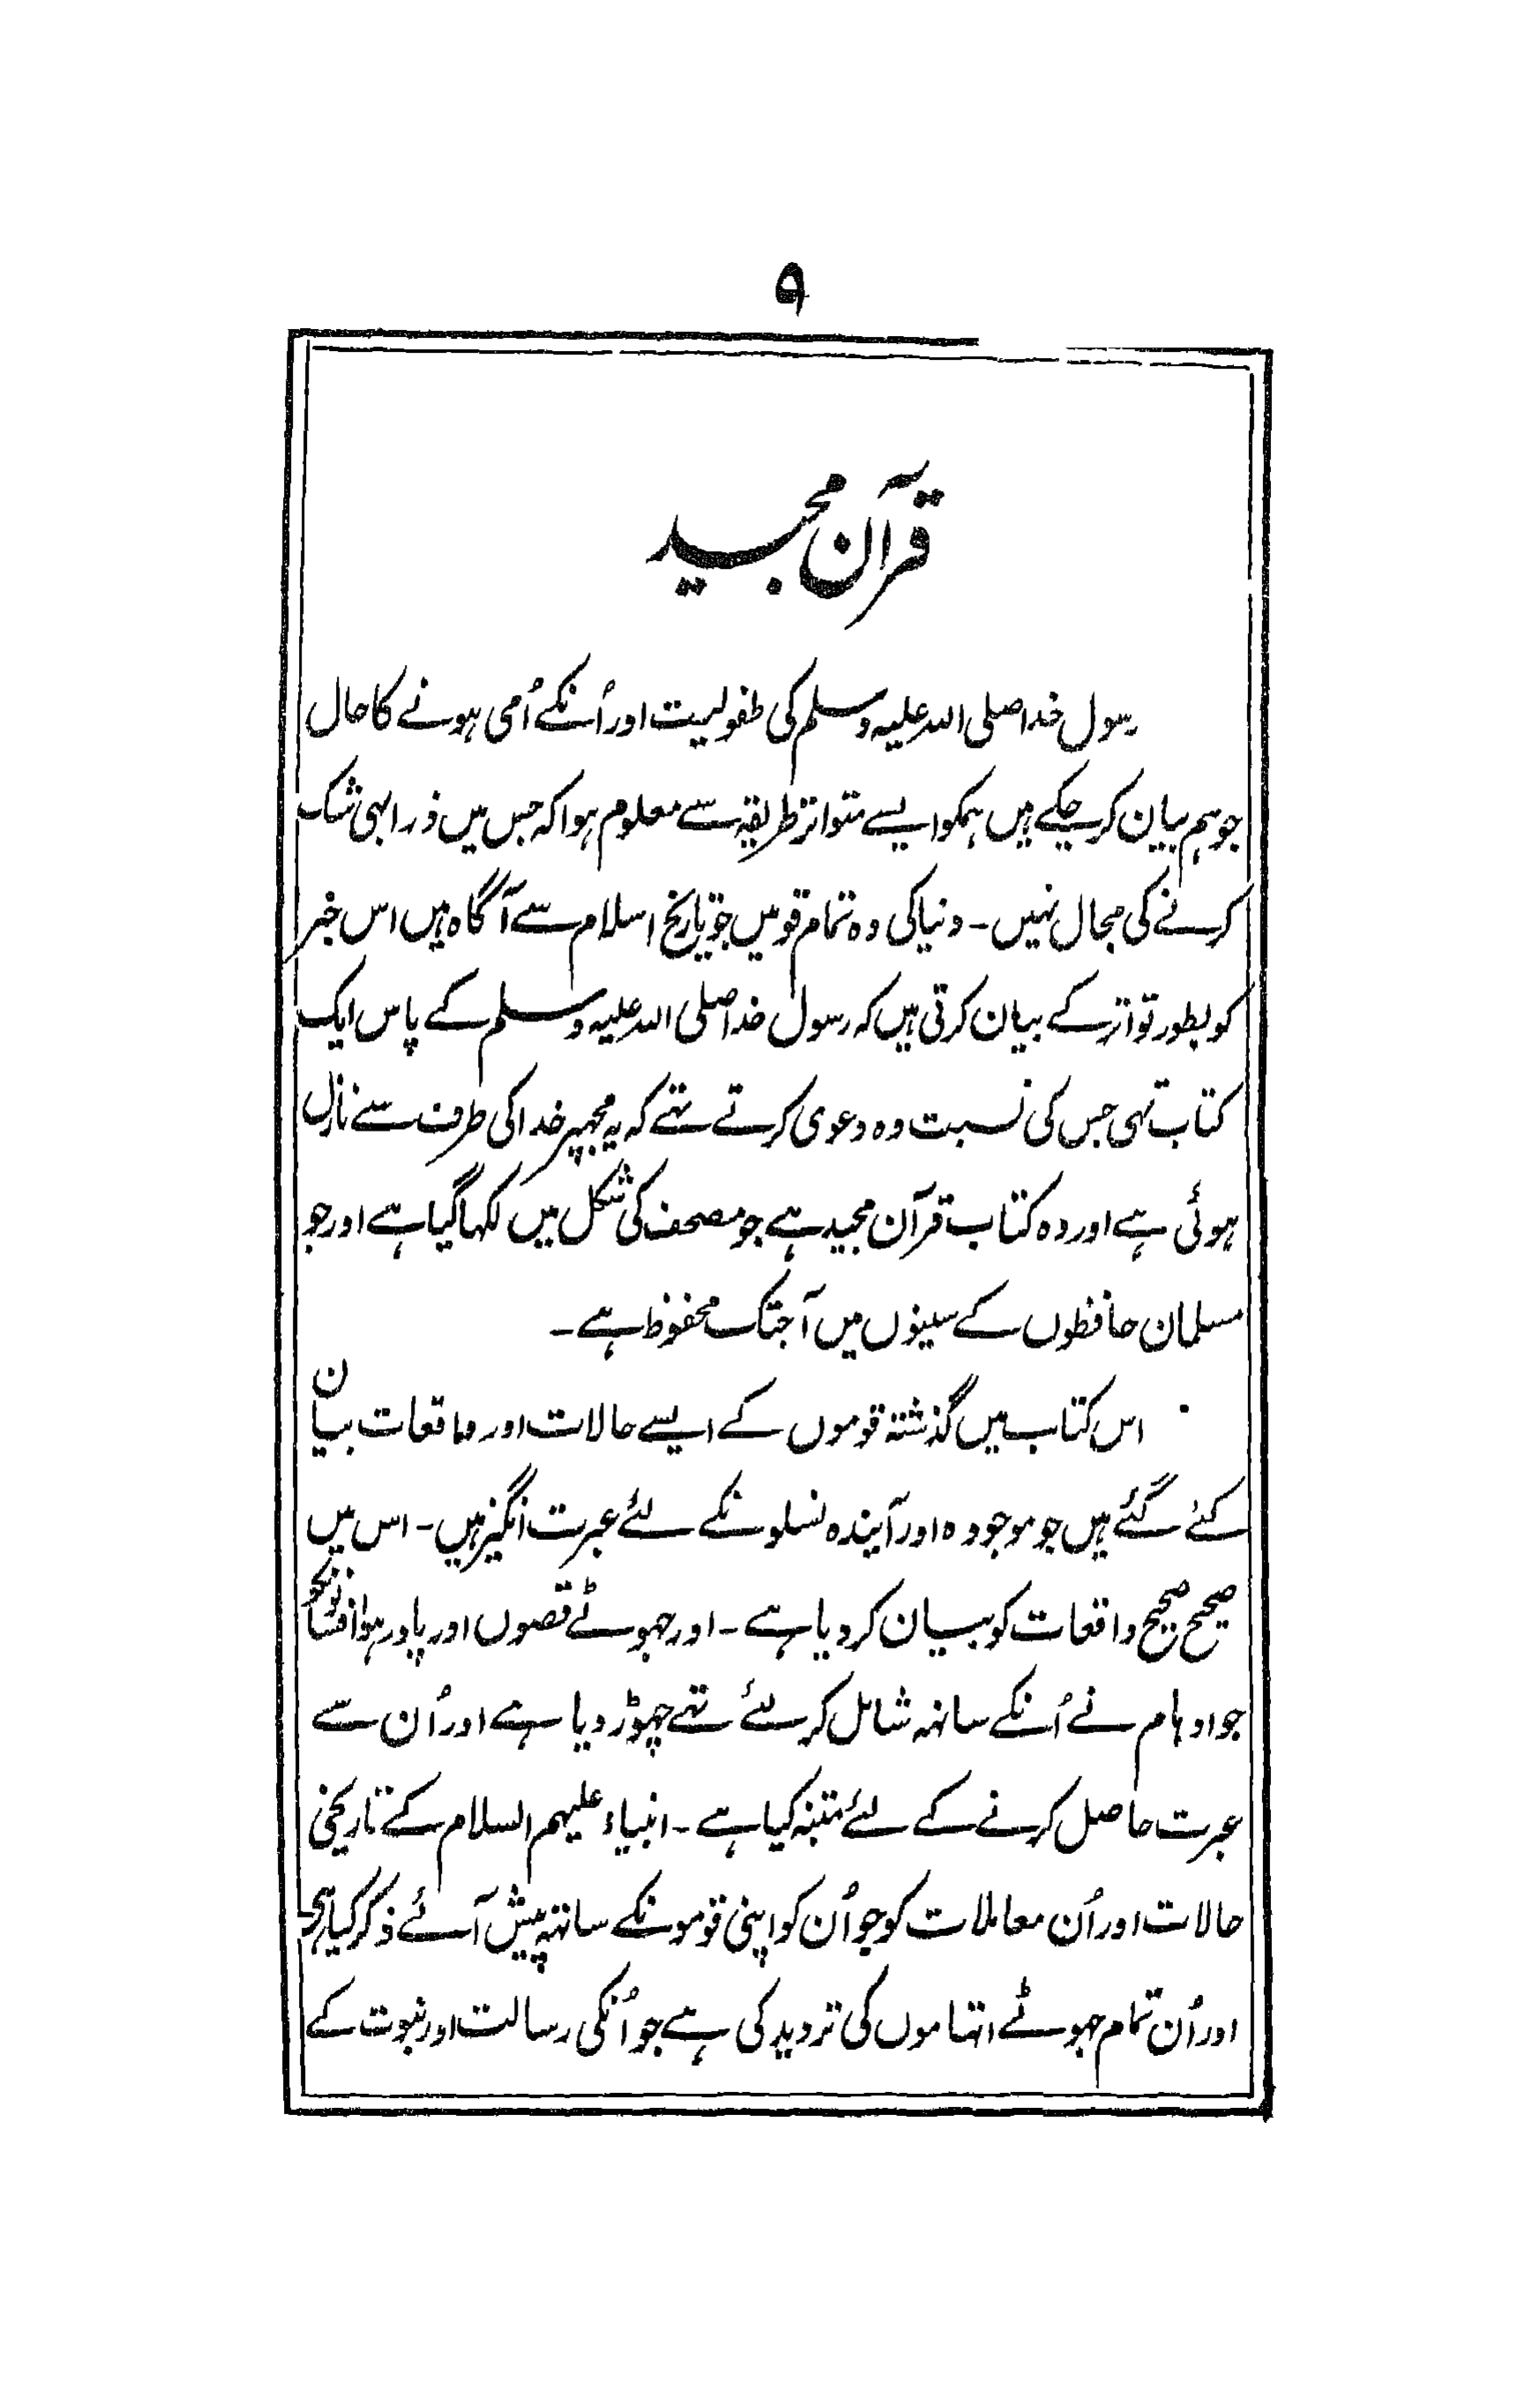 ۹
قرآن مجید
رسول خدا صلی اللہ علیہ وسلم کی طفولیت اور اُنکے اُمی ہونے کا حال
جو ہم بیان کر چکے ہیں ہمکو ایسے متواتر طریقہ سے معلوم ہوا کہ جس میں ذرا بہی شک
کرنے کی مجال نہیں ۔ دنیا کی وہ تمام قومیں جو تاریخ اسلام سے آگاہ ہیں اس خبر
کو بطور تواتر کے بیان کرتی ہیں کہ رسول خدا صلی اللہ علیہ وسلم کے پاس ایک
کتاب تہی جس کی نسبت وہ دعوی کرتے تہے کہ یہ مجہپر خدا کی طرف سے نازل
ہوئی ہے اور وہ کتاب قرآن مجید ہے جو مصحف کی شکل میں لکہا گیا ہے اور جو
مسلمان حافظوں کے سینوں میں آجتک محفوظ ہے ۔
اس کتاب میں گذشتہ قوموں کے ایسے حالات اور واقعات بیان
کئے گئے ہیں جو موجودہ اور آیندہ نسلونکے لئے عبرت انگیز ہیں ۔ اس میں
صحیح صحیح واقعات کو بیان کر دیا ہے ۔ اور جہوٹے قصوں اور پادر ہوا افسانونکو
جو اوہام نے اُنکے ساتہہ شامل کر لئے تہے چہوڑ دیا ہے اور اُن سے
عبرت حاصل کرنے کے لئے متنبہ کیا ہے ۔ انبیاء علیہم السلام کے تاریخی
حالات اور اُن معاملات کو جو اُن کو اپنی قومونکے ساتہہ پیش آئے ذکر کیا ہی
اور اُن تمام جہوٹے اتہاموں کی تردید کی ہے جو اُنکی رسالت اور نبوت کے